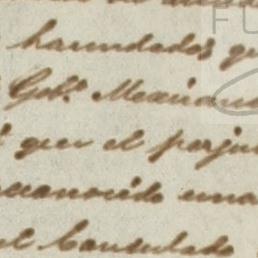 FU
haundados qu
Gob.º Mexicano
que el perju
reconocido una
el Consulado